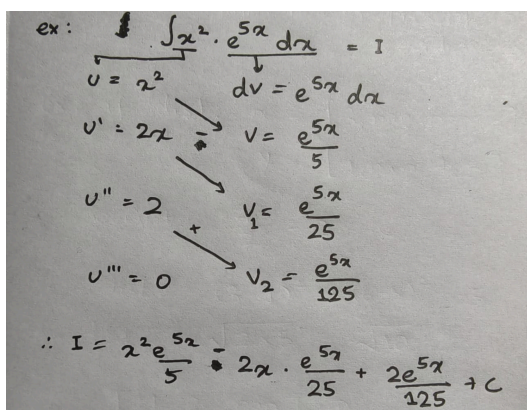 ex : ∫x² · e^5x dx = I
u = x² dv = e^5x dx
u' = 2x - v = e^5x/5
u'' = 2 + v₁ = e^5x/25
u''' = 0 v₂ = e^5x/125
∴ I = x² e^5x/5 - 2x · e^5x/25 + 2e^5x/125 + C